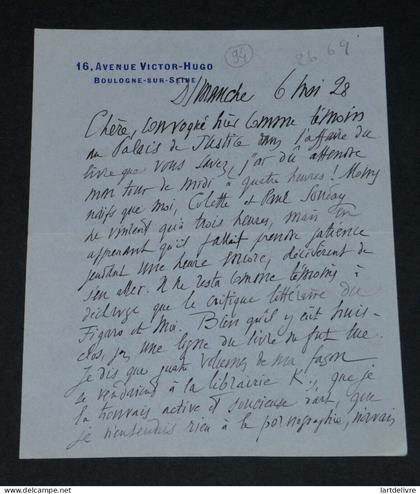 16, AVENUE VICTOR-HUGO
BOULOGNE-SUR-SEINE
94
26 69
Dimanche 6 mai 28
Chère, convoqué hier comme témoin
au Palais de Justice dans l'affaire du
livre que vous savez, j'ai dû attendre
mon tour de midi à quatre heures! Moins
naïfs que moi, Colette et Paul Souday
ne vinrent qu'à trois heures, mais en
apprenant qu'il fallait prendre patience
pendant une heure encore, décidèrent de
s'en aller. Il ne resta comme témoins à
décharge que le critique littéraire du
Figaro et moi. Bien qu'il y eût huis-
clos, pas une ligne du livre ne fut lue.
Je dis que quatre volumes de ma façon
se vendaient à la librairie K., que je
la trouvais active et soucieuse d'art, que
je n'entendais rien à la pornographie, n'avais